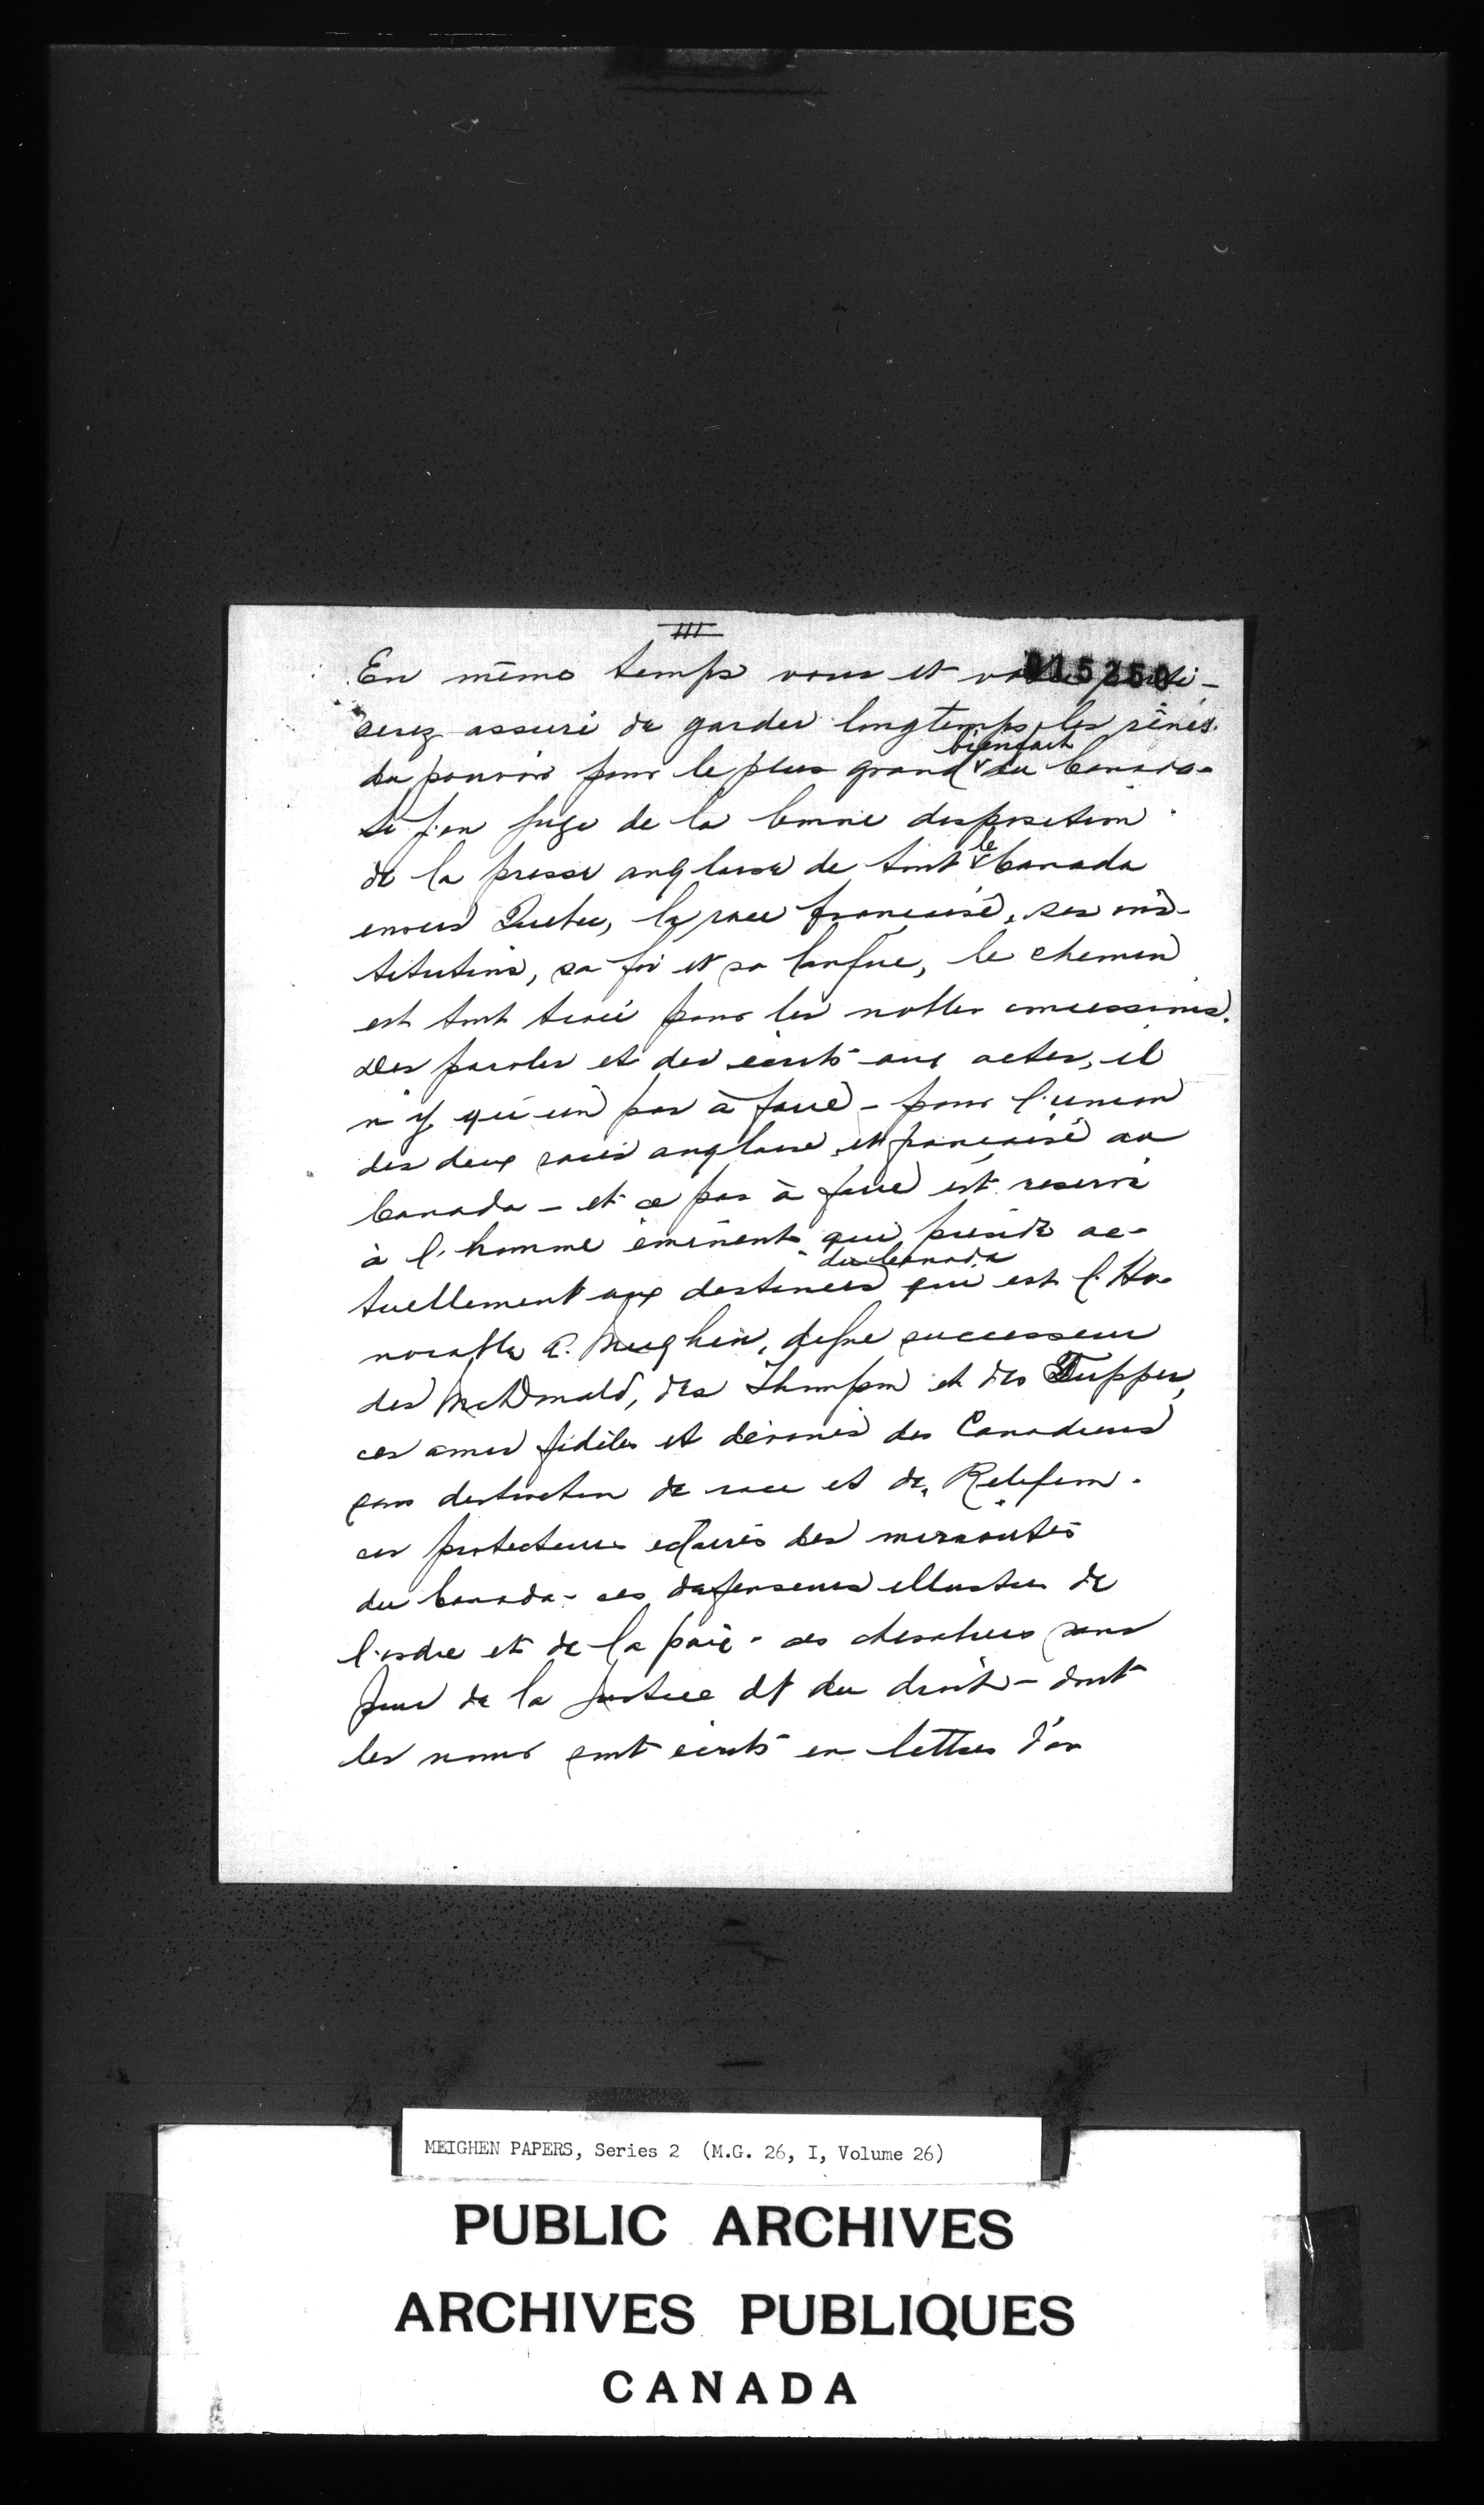 III
015250
En même temps vous et votre parti -
serez assuré de garder longtemps les rênes
du pouvoir pour le plus grand bienfait du Canada -
Si j'en juge de la bonne disposition
de la presse anglaise de tout le Canada
envers Quebec, la race française, ses ins-
titutions, sa foi et sa langue, le chemin
est tout tracé pour les nobles concessions.
Des paroles et des écrits aux actes, il
n'y qu'un pas à faire - pour l'union
des deux races anglaise et française au
Canada - et ce pas à faire est reservé
à l'homme éminent qui préside ac-
tuellement aux destinées du Canada qui est l'Ho-
norable A. Meighen, digne successeur
des McDonald, des Thompson et des Tupper,
ces amis fidèles et dévoués des Canadiens
sans distinction de race et de Religion -
ces protecteurs eclairés des minorités
du Canada - ces defenseurs illustres de
l'ordre et de la paix - ces chevaliers sans
peur de la justice et du droit - dont
les noms sont écrits en lettres d'or
MEIGHEN PAPERS, Series 2 (M.G. 26, I, Volume 26)
PUBLIC ARCHIVES
ARCHIVES PUBLIQUES
CANADA